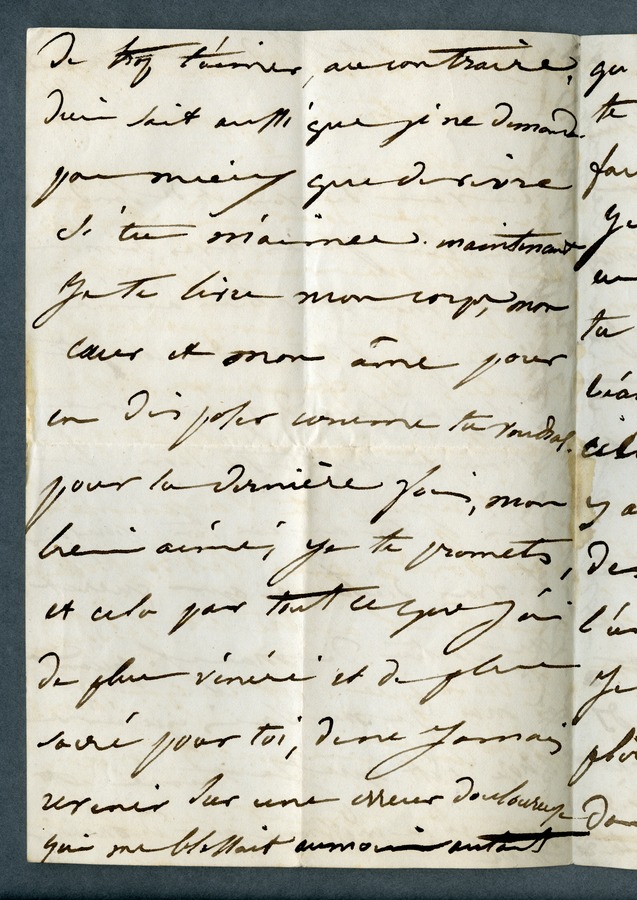 de trop t'aimer, au contraire,
dieu sait aussi que je ne demande
pas mieux que de vivre
si tu m'aimes. maintenant
je te livre mon corps, mon
cœur et mon âme pour
en disposer comme tu voudras.
pour la dernière fois, mon
bien aimé, je te promets,
et cela par tout ce que j'ai
de plus vénéré et de plus
sacré pour toi, de ne jamais
revenir sur une erreur douloureuse
qui me blessait au moins autant
qu
te
fau
Je
en
tu
y a
de
l'
Je